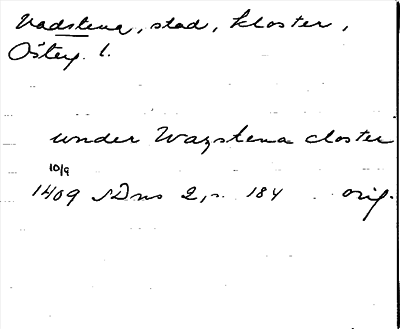 Vadstena, stad, kloster,
Östeg. l.
under Wazstena closter
10/9
1409 SDns 2, s. 184 orig.